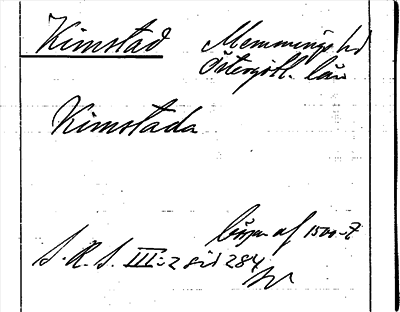 Kimstad
Memmings hd
Östergötl. län
Kimstada
början af 1500-t
S.R.S. III:2 sid 284